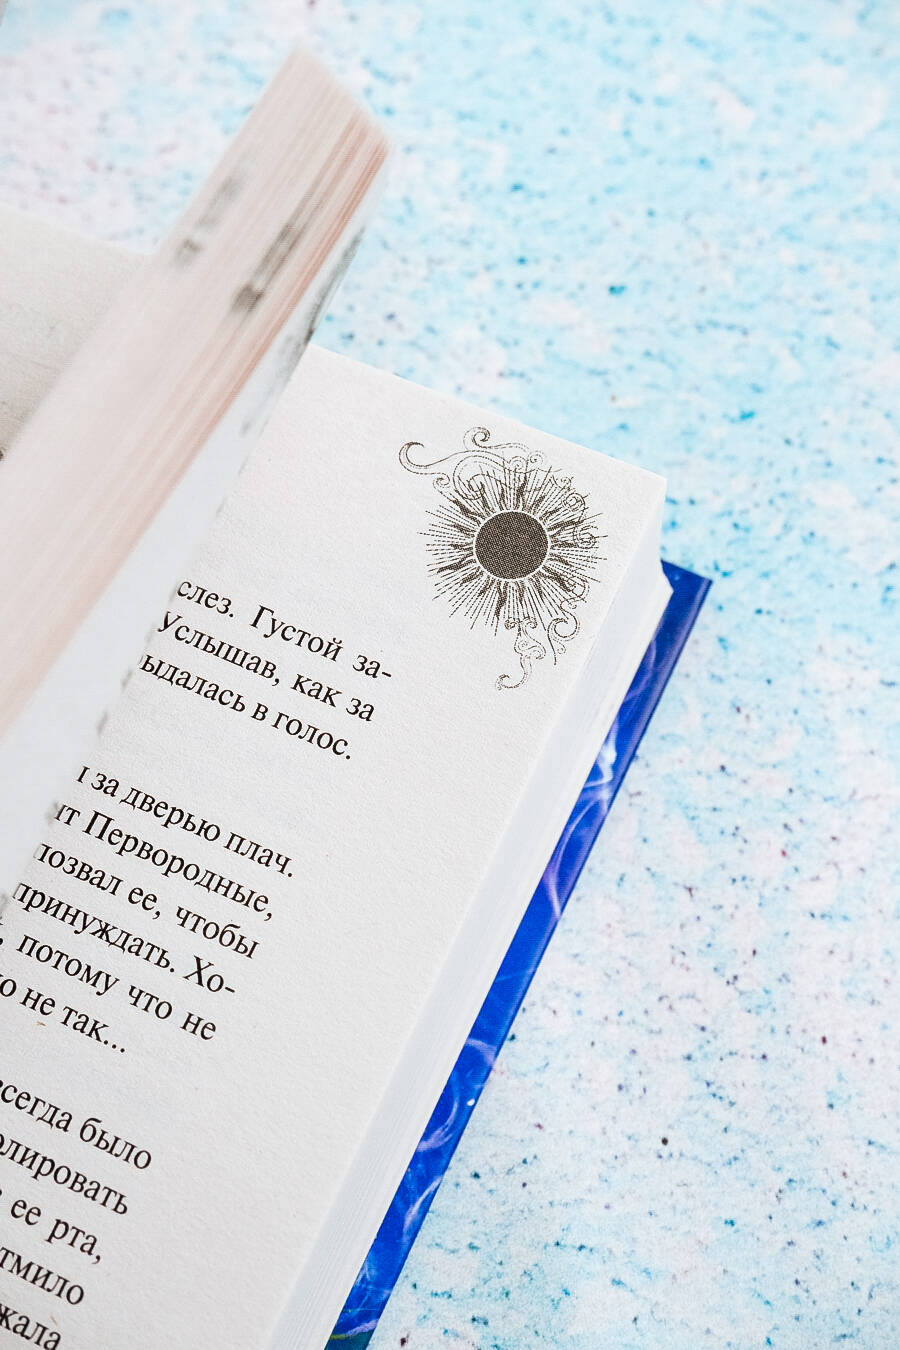 слез. Густой за-
Услышав, как за
ыдалась в голос.
за дверью плач.
ит Первородные,
позвал ее, чтобы
принуждать. Хо-
, потому что не
о не так...
всегда было
олировать
ее рта,
тмило
жала